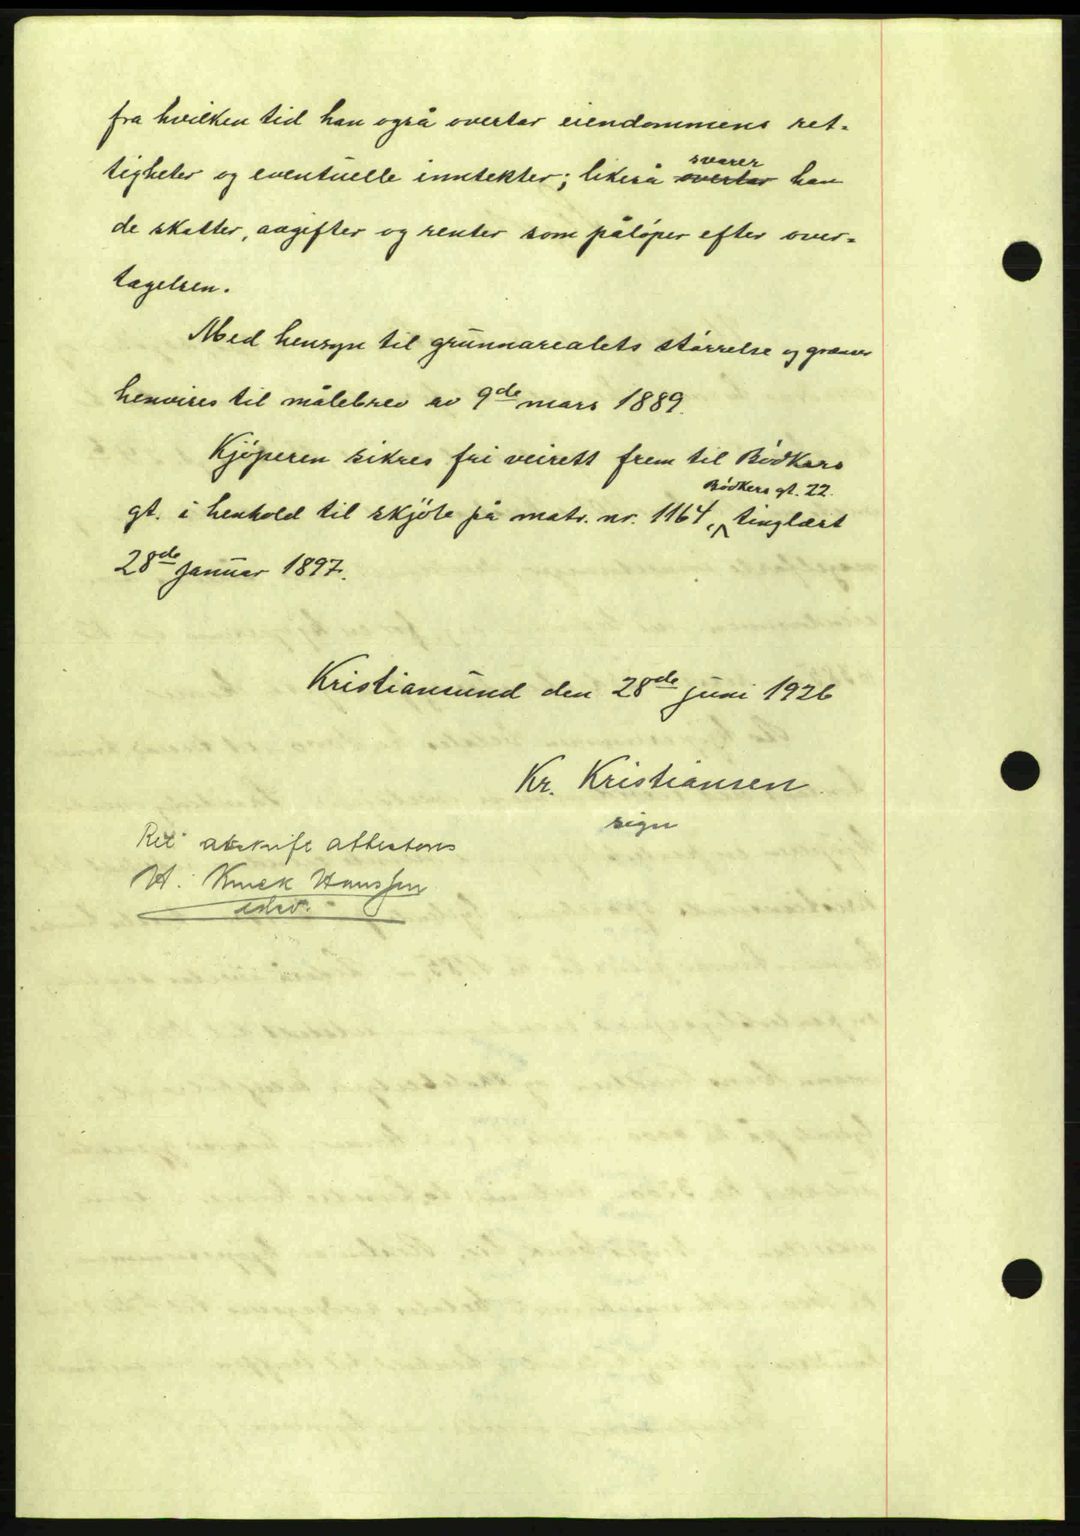 fra hvilken tid han også overtar eiendommens ret-
tigheter og eventuelle inntekter; likeså overtar svarer han
de skatter, avgifter og renter som påløper efter over-
tagelsen.
Med hensyn til grunnarealets størrelse og grenser
henvises til målebrev av 9de mars 1889.
Kjøperen sikres fri veirett frem til Bødkers
gt. i henhold til skjøte på matr. nr. 1164, Bødkers gt. 22. tinglæst
28de januar 1897.
Kristiansund den 28de juni 1926
Kr. Kristiansen
sign
Ret avskrift attesteres
H. Hanssen
adv.